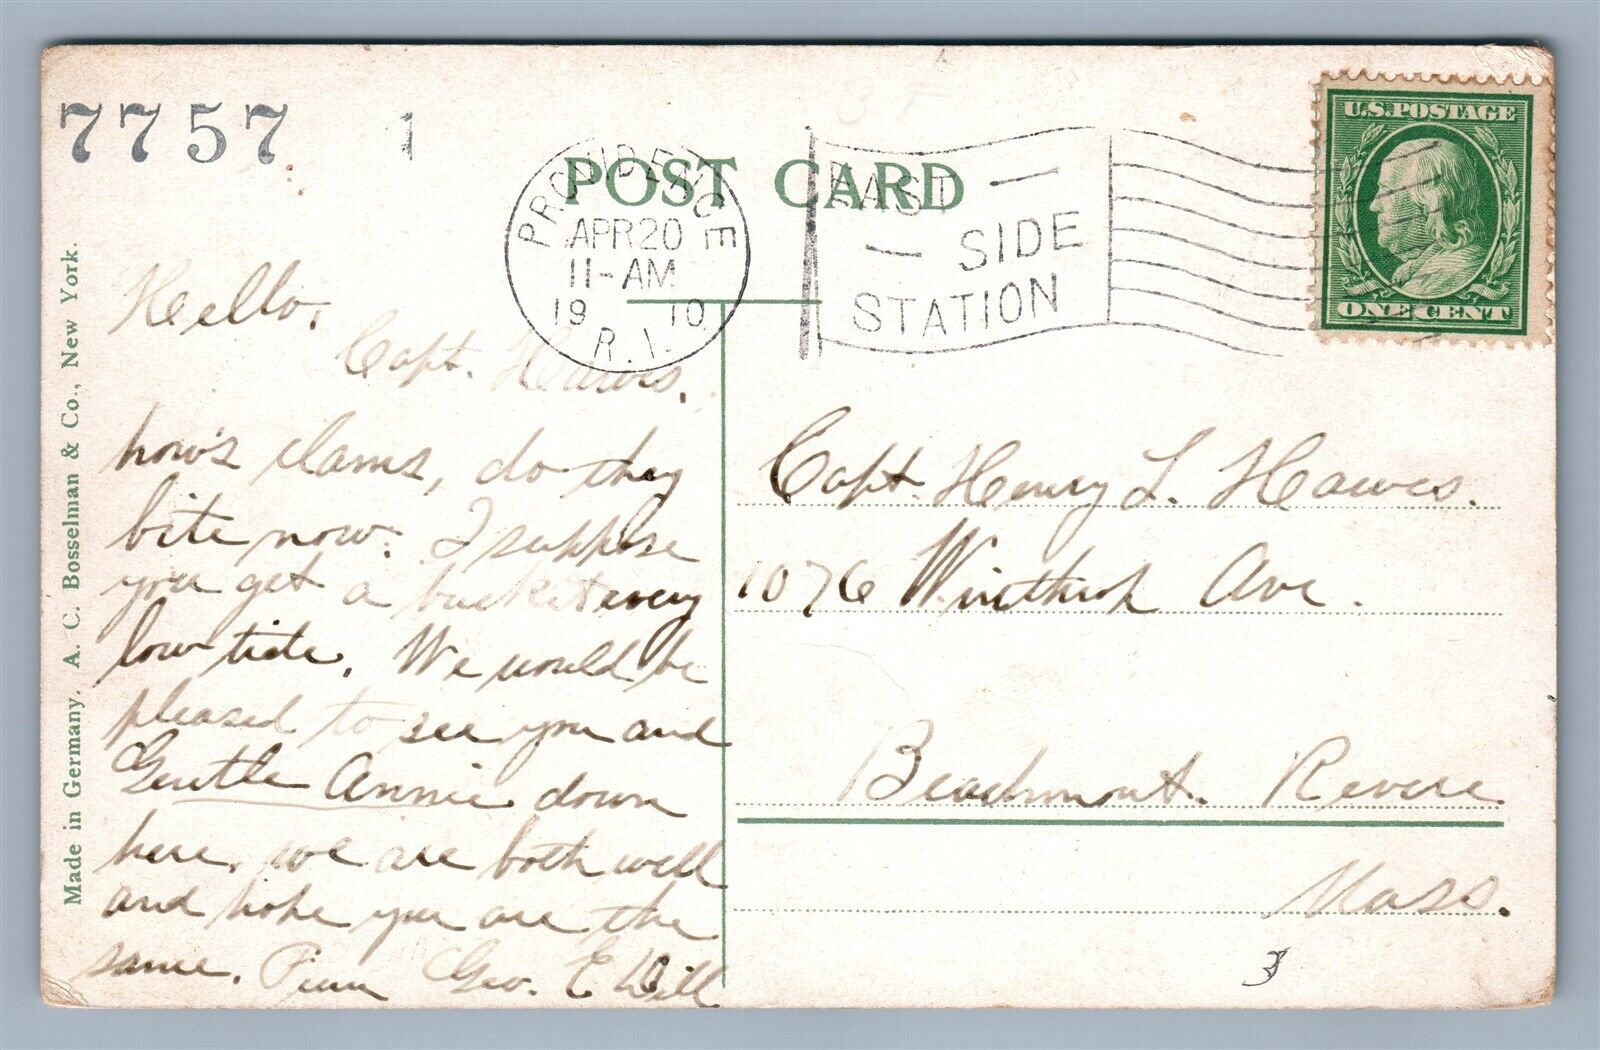 7757 1
POST CARD
PROVIDENCE
APR 20
11-AM
1910
R.I.
EAST
SIDE
STATION
U.S. POSTAGE
ONE CENT
Made in Germany. A. C. Bosselman & Co., New York.
Hello,
Capt. Hawes,
how's clams, do they
bite now. I suppose
you get a bucket every
low tide. We would be
pleased to see you and
Gentle Annie down
here, we are both well
and hope you are the
same. Geo. E
Capt. Henry L. Hawes.
1076 Winthrop Ave.
Beachmont. Revere
Mass.
3